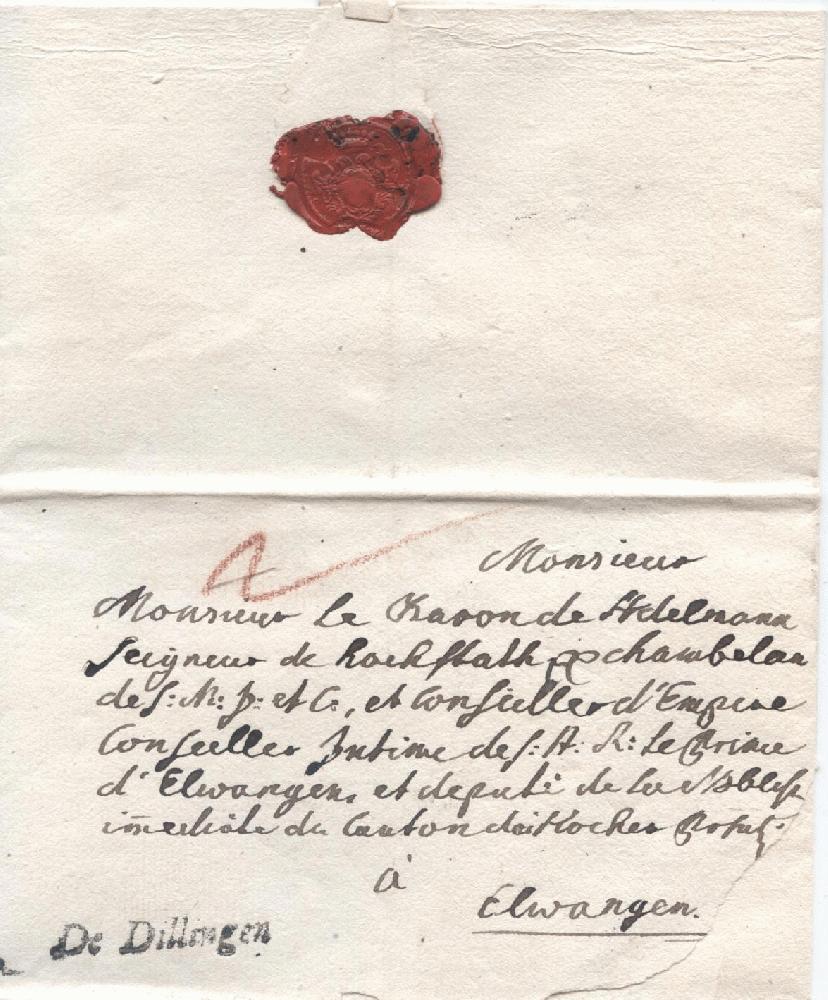 Monsieur
Monsieur Le Baron de Adelmann
Seigneur de hochstath chambelan
de S: M: J: et C:, et Conseiller d'Empire
Conseiller Intime de S: A: R: Le Prince
d'Elwangen, et deputé de La Noblesse
im̄ediate du Canton de Kocher
à
Elwangen.
De Dillingen